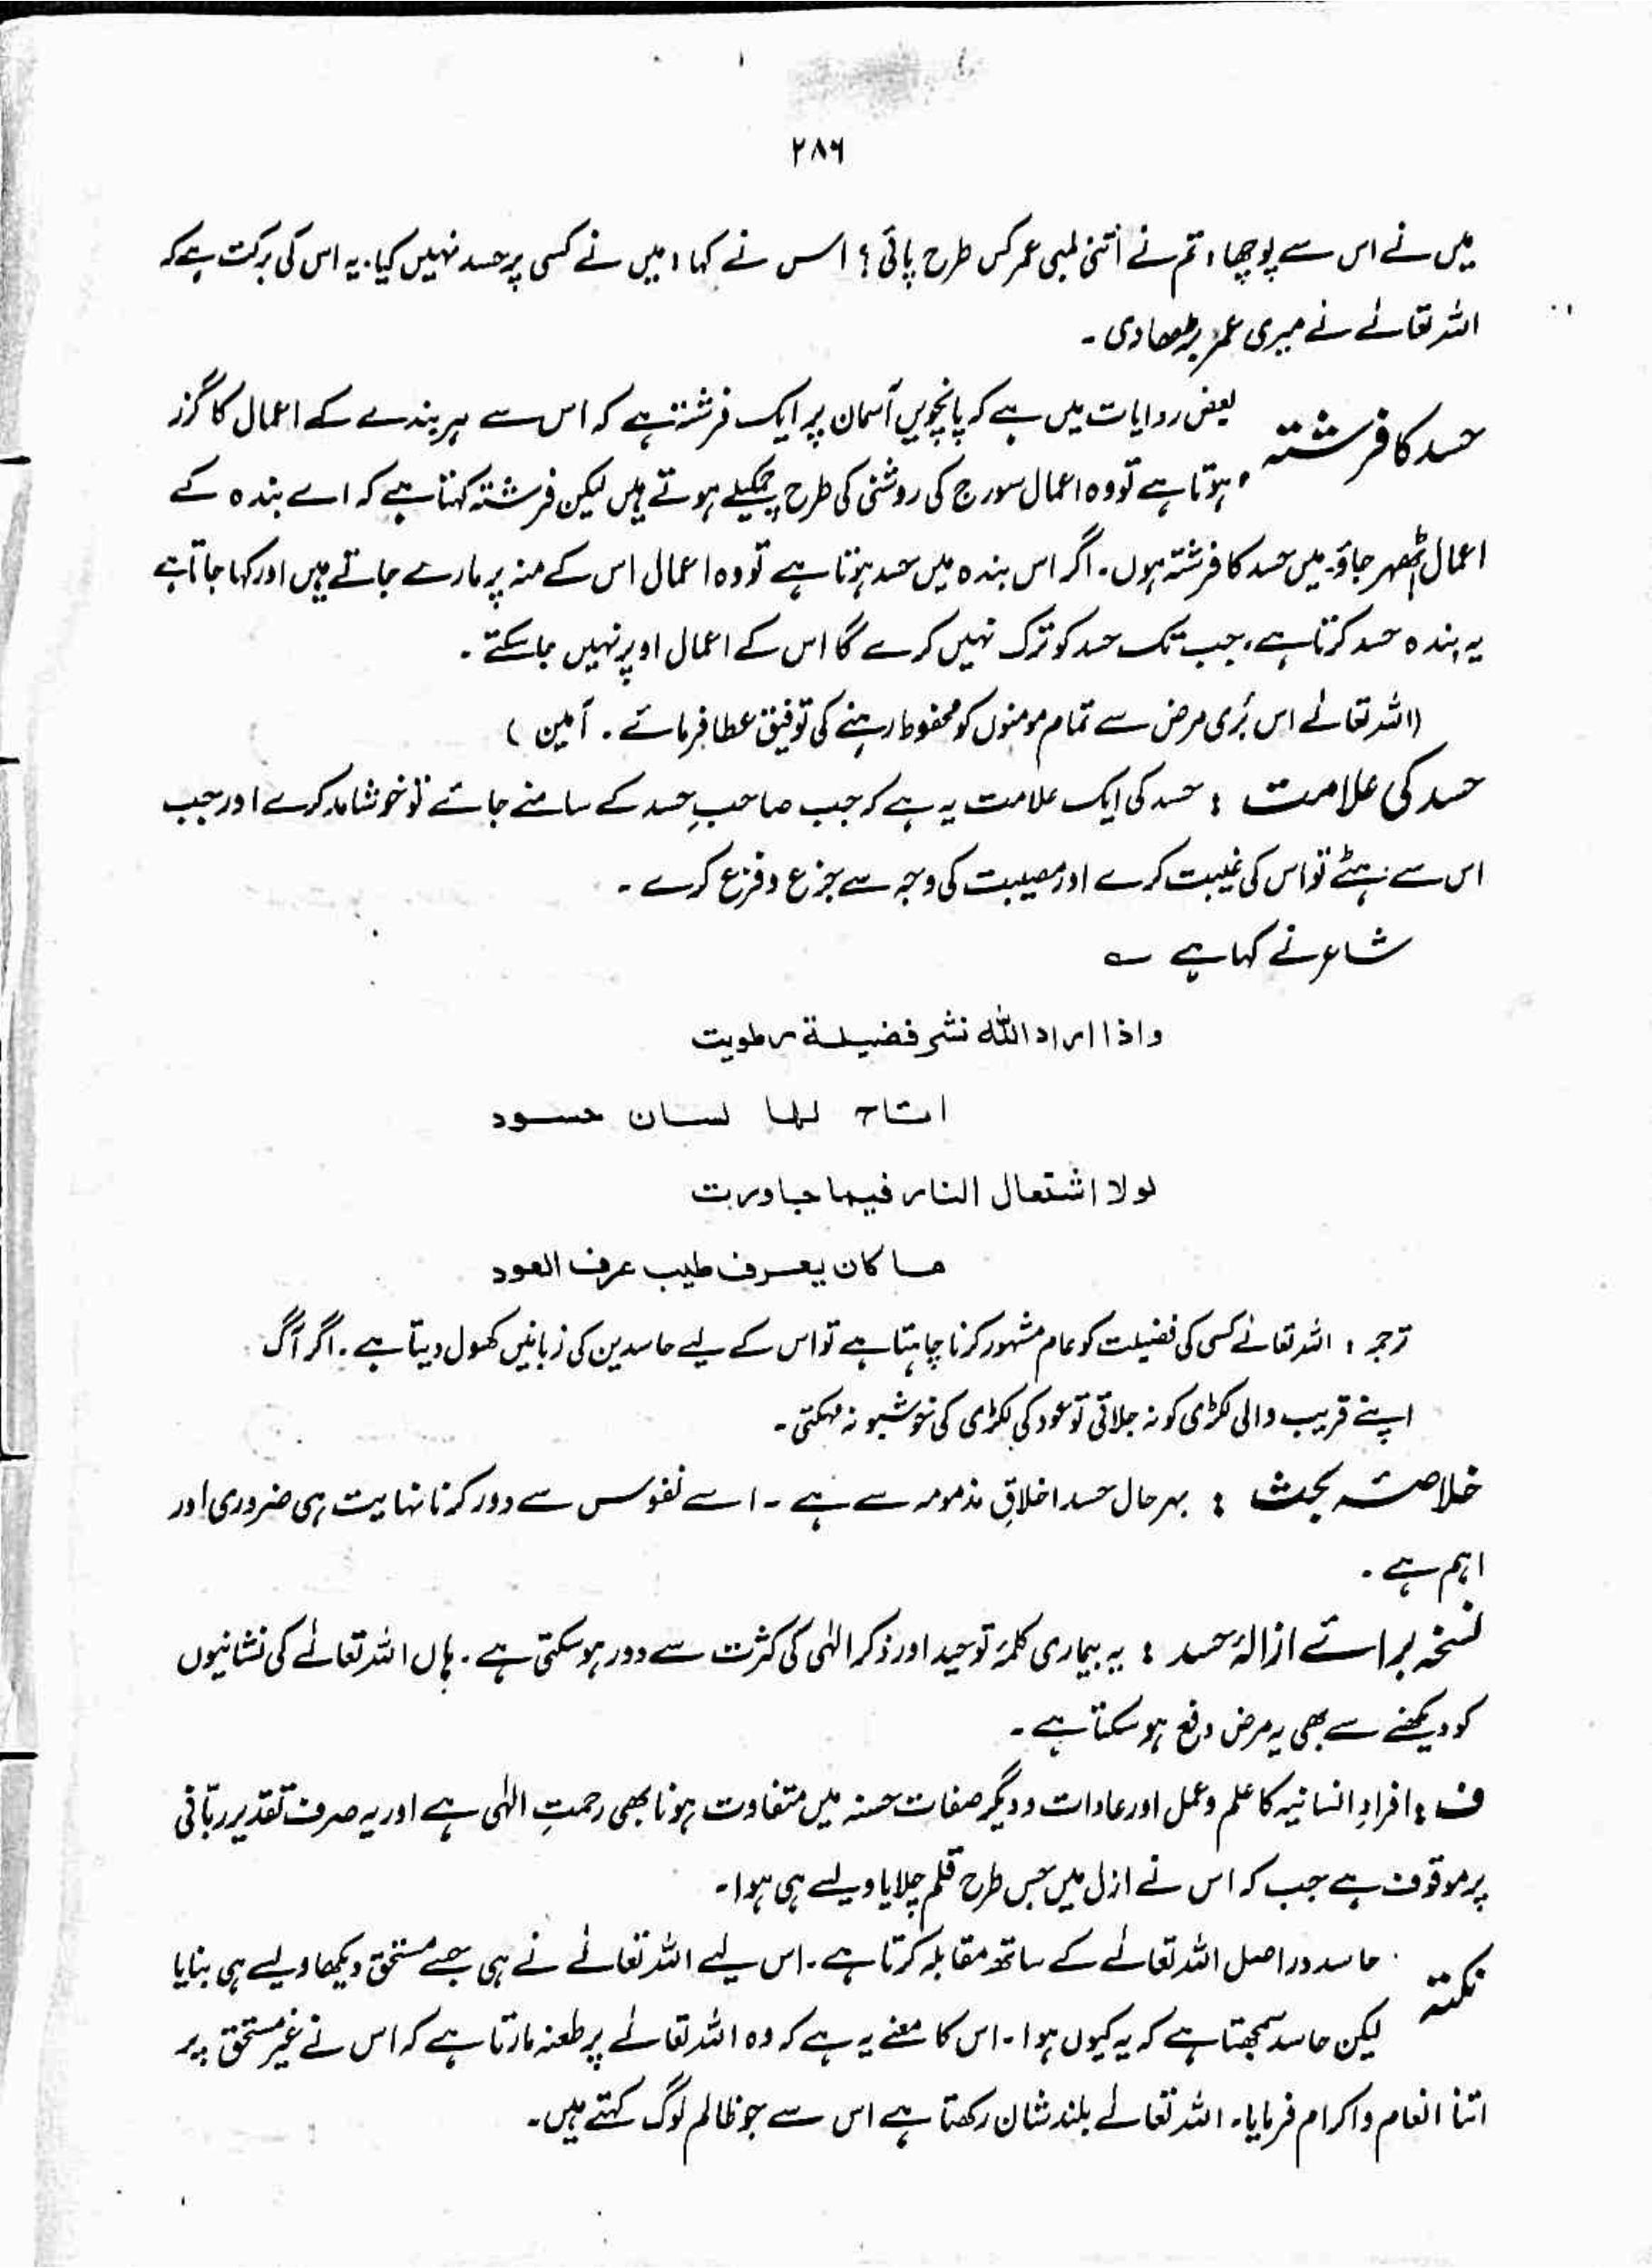 ۲۸۶
میں نے اس سے پوچھا، تم نے اتنی لمبی عمر کس طرح پائی؟ اس نے کہا، میں نے کسی پر حسد نہیں کیا۔ یہ اس کی برکت ہے کہ
اللہ تعالٰے نے میری عمر بڑھا دی۔
حسد کا فرشتہ بعض روایات میں ہے کہ پانچویں آسمان پر ایک فرشتہ ہے کہ اس سے ہر بندے کے اعمال کا گزر
ہوتا ہے تو وہ اعمال سورج کی روشنی کی طرح چمکیلے ہوتے ہیں لیکن فرشتہ کہتا ہے کہ اے بندہ کے
اعمال ٹھہر جاؤ۔ میں حسد کا فرشتہ ہوں۔ اگر اس بندہ میں حسد ہوتا ہے تو وہ اعمال اس کے منہ پر مارے جاتے ہیں اور کہا جاتا ہے
یہ بندہ حسد کرتا ہے، جب تک حسد کو ترک نہیں کرے گا اس کے اعمال اوپر نہیں جا سکتے۔
(اللہ تعالٰے اس بُری مرض سے تمام مومنوں کو محفوظ رہنے کی توفیق عطا فرمائے۔ آمین)
حسد کی علامت : حسد کی ایک علامت یہ ہے کہ جب صاحبِ حسد کے سامنے جائے تو خوشامد کرے اور جب
اس سے ہٹے تو اس کی غیبت کرے اور مصیبت کی وجہ سے جزع و فزع کرے۔
شاعر نے کہا ہے ؎
واذا اراد اللّٰہ نشر فضیلۃ طویت
اتاح لها لسان حسود
لولا اشتعال النار فیما جاورت
ما کان یعرف طیب عرف العود
ترجمہ : اللہ تعالٰے کسی کی فضیلت کو عام مشہور کرنا چاہتا ہے تو اس کے لیے حاسدین کی زبانیں کھول دیتا ہے۔ اگر آگ
اپنے قریب والی لکڑی کو نہ جلاتی تو عود کی لکڑی کی خوشبو نہ مہکتی۔
خلاصۂ بحث : بہر حال حسد اخلاقِ مذمومہ سے ہے۔ اسے نفوس سے دور کرنا نہایت ہی ضروری اور
اہم ہے۔
نسخہ برائے ازالۂ حسد : یہ بیماری کلمۂ توحید اور ذکر الٰہی کی کثرت سے دور ہو سکتی ہے۔ ہاں اللہ تعالٰے کی نشانیوں
کو دیکھنے سے بھی یہ مرض دفع ہو سکتا ہے۔
ف : افرادِ انسانیہ کا علم و عمل اور عادات و دیگر صفات حسنہ میں متفاوت ہونا بھی رحمتِ الٰہی ہے اور یہ صرف تقدیر ربّانی
پر موقوف ہے جب کہ اس نے ازل میں جس طرح قلم چلایا ویسے ہی ہوا۔
نکتہ حاسد دراصل اللہ تعالٰے کے ساتھ مقابلہ کرتا ہے۔ اس لیے اللہ تعالٰے نے ہی جسے مستحق دیکھا ویسے ہی بنایا
لیکن حاسد سمجھتا ہے کہ یہ کیوں ہوا۔ اس کا معنے یہ ہے کہ وہ اللہ تعالٰے پر طعنہ مارتا ہے کہ اس نے غیر مستحق پر
اتنا انعام و اکرام فرمایا۔ اللہ تعالٰے بلند شان رکھتا ہے اس سے جو ظالم لوگ کہتے ہیں۔